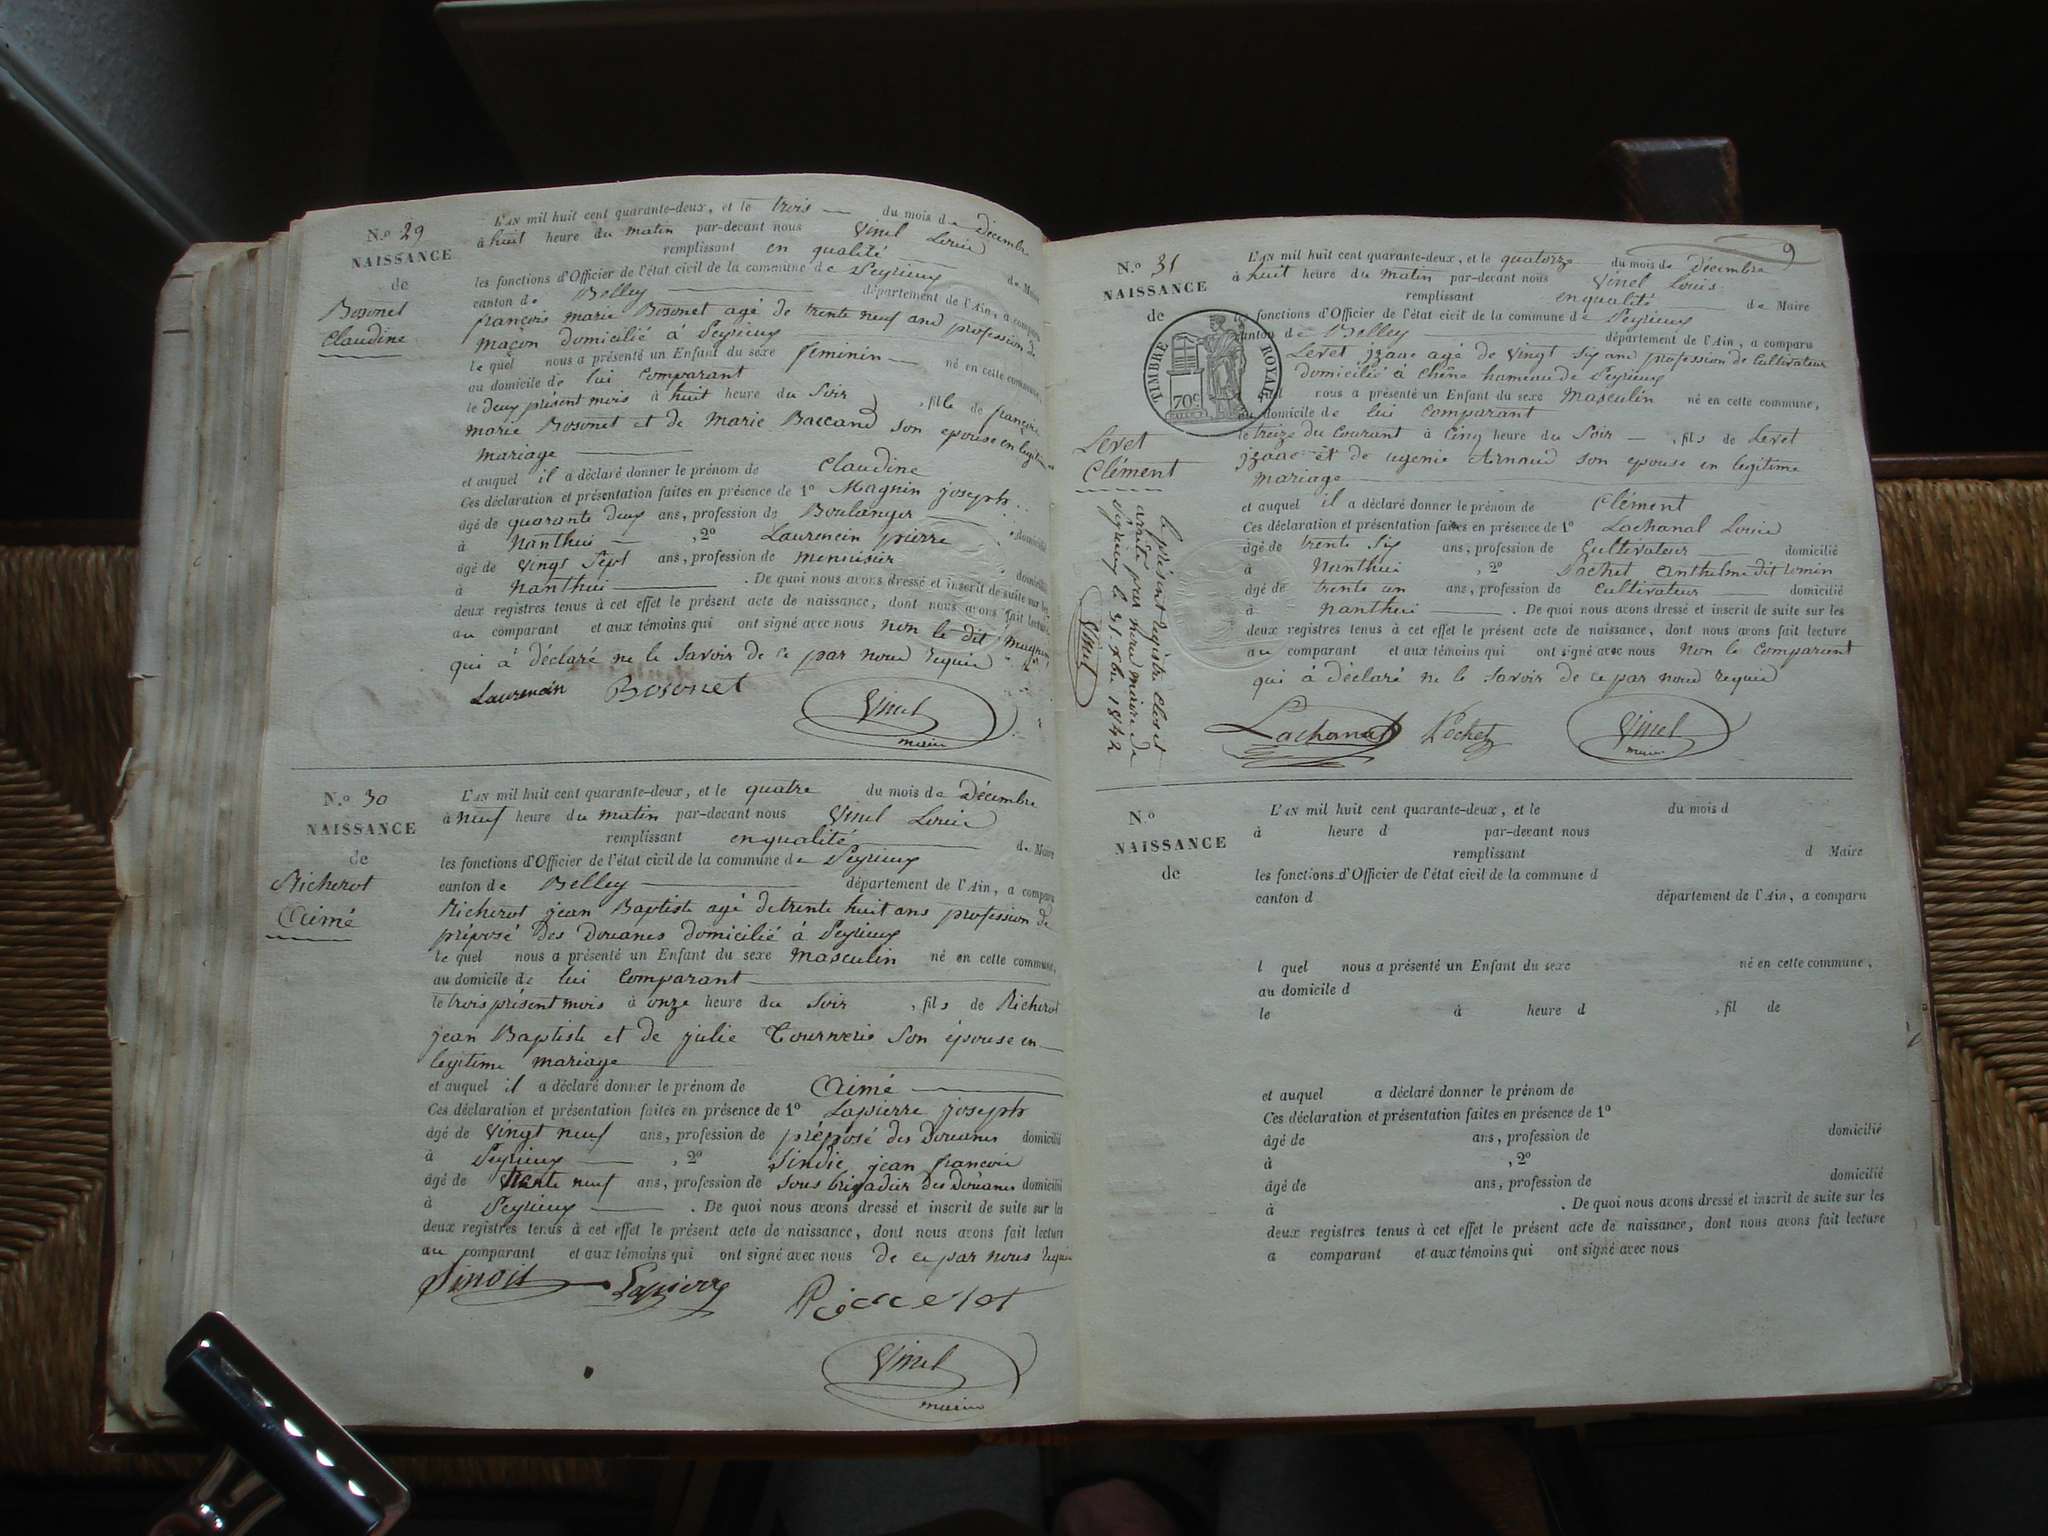 N.o 29
NAISSANCE
de
Bosonet
Claudine
L'AN mil huit cent quarante-deux, et le trois du mois de Décembre
à huit heure du matin par-devant nous Vinel Louis
remplissant en qualité de Maire
les fonctions d'Officier de l'état civil de la commune de Peyrieux
canton de Belley département de l'Ain, a comparu
françois marie Bosonet agé de trente neuf ans profession de
maçon domicilié à Peyrieux
le quel nous a présenté un Enfant du sexe feminin né en cette commune,
au domicile de lui comparant
le deux présent mois à huit heure du Soir, fille de françois
marie Bosonet et de Marie Baccand son epouse en legitime
mariage
et auquel il a déclaré donner le prénom de Claudine
Ces déclaration et présentation faites en présence de 1o Magnin joseph
âgé de quarante deux ans, profession de Boulanger domicilié
à Nanthui, 2o Laurencin pierre
âgé de vingt Sept ans, profession de menuisier domicilié
à Nanthui. De quoi nous avons dressé et inscrit de suite sur les
deux registres tenus à cet effet le présent acte de naissance, dont nous avons fait lecture
au comparant et aux témoins qui ont signé avec nous non le dit Magnin
qui à déclaré ne le Savoir de ce par nous requis
Laurencin Bosonet Vinel
maire
N.o 30
NAISSANCE
de
Richerot
Aimé
L'AN mil huit cent quarante-deux, et le quatre du mois de Décembre
à neuf heure du matin par-devant nous Vinel Louis
remplissant en qualité de Maire
les fonctions d'Officier de l'état civil de la commune de Peyrieux
canton de Belley département de l'Ain, a comparu
Richerot jean Baptiste agé de trente huit ans profession de
préposé des Douanes domicilié à Peyrieux
le quel nous a présenté un Enfant du sexe Masculin né en cette commune,
au domicile de lui comparant
le trois présent mois à onze heure du Soir, fils de Richerot
jean Baptiste et de julie Son épouse en
legitime mariage
et auquel il a déclaré donner le prénom de Aimé
Ces déclaration et présentation faites en présence de 1o Lapierre joseph
âgé de vingt neuf ans, profession de préposé des Douanes domicilié
à Peyrieux, 2o jean françois
âgé de trente neuf ans, profession de Sous brigadier des Douanes domicilié
à Peyrieux. De quoi nous avons dressé et inscrit de suite sur les
deux registres tenus à cet effet le présent acte de naissance, dont nous avons fait lecture
au comparant et aux témoins qui ont signé avec nous de ce par nous requis
Lapierre
Vinel
maire
9
N.o 31
NAISSANCE
de
TIMBRE ROYAL
70c
Levet
Clément
le présent registre clos et
arrêté par nous maire de
Peyrieux le 31 Xbre 1842
Vinel
L'AN mil huit cent quarante-deux, et le quatorze du mois de Décembre
à huit heure du matin par-devant nous Vinel Louis
remplissant en qualité de Maire
les fonctions d'Officier de l'état civil de la commune de Peyrieux
canton de Belley département de l'Ain, a comparu
Levet jzaac agé de vingt six ans profession de Cultivateur
domicilié à Chêne hameau de Peyrieux
nous a présenté un Enfant du sexe Masculin né en cette commune,
au domicile de lui comparant
le treize du courant à cinq heure du Soir, fils de Levet
jzaac et de ugenie Arnaud son epouse en legitime
mariage
et auquel il a déclaré donner le prénom de Clément
Ces déclaration et présentation faites en présence de 1o Lachanal Louis
âgé de trente six ans, profession de Cultivateur domicilié
à Nanthui, 2o Pochet anthelme dit
âgé de trente un ans, profession de Cultivateur domicilié
à Nanthui. De quoi nous avons dressé et inscrit de suite sur les
deux registres tenus à cet effet le présent acte de naissance, dont nous avons fait lecture
au comparant et aux témoins qui ont signé avec nous Non le Comparant
qui à déclaré ne le Savoir de ce par nous requis
Lachanal Pochet Vinel
maire
N.o
NAISSANCE
de
L'AN mil huit cent quarante-deux, et le du mois d
à heure d par-devant nous
remplissant d Maire
les fonctions d'Officier de l'état civil de la commune d
canton d département de l'Ain, a comparu
l quel nous a présenté un Enfant du sexe né en cette commune,
au domicile d
le à heure d, fil de
et auquel a déclaré donner le prénom de
Ces déclaration et présentation faites en présence de 1o
âgé de ans, profession de domicilié
à, 2o
âgé de ans, profession de domicilié
à. De quoi nous avons dressé et inscrit de suite sur les
deux registres tenus à cet effet le présent acte de naissance, dont nous avons fait lecture
a comparant et aux témoins qui ont signé avec nous